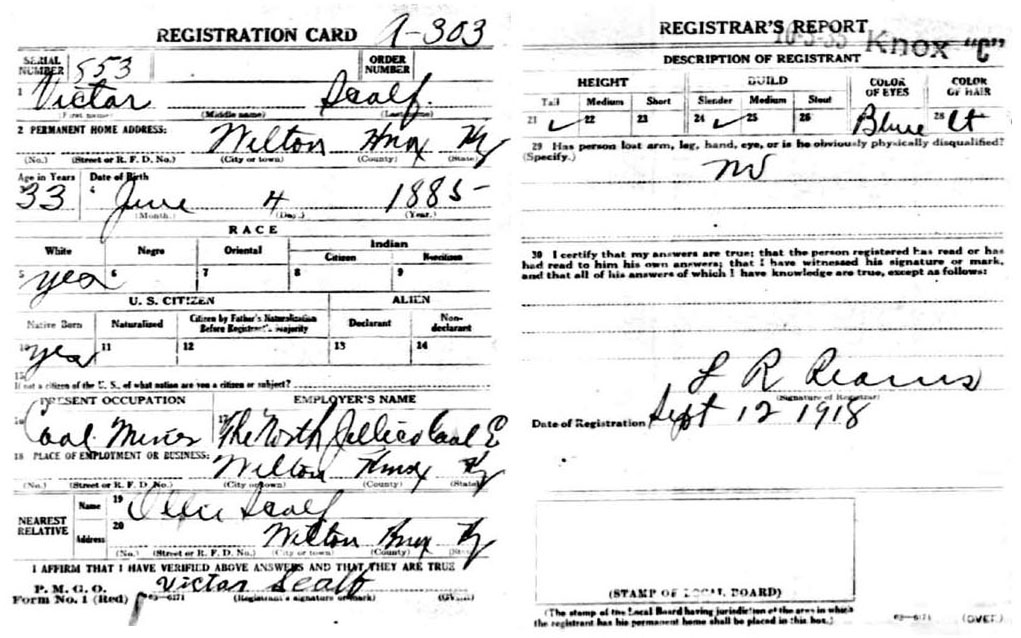 REGISTRATION CARD A-303
SERIAL NUMBER 553 ORDER NUMBER
1 Victor Scalf.
(First name) (Middle name) (Last name)
2 PERMANENT HOME ADDRESS: Wilton Knox Ky
(No.) (Street or R. F. D. No.) (City or town) (County) (State)
Age in Years Date of Birth
33 4 June 4 1885
(Month.) (Day.) (Year.)
RACE
White Negro Oriental Indian
Citizen Noncitizen
5 yes 6 7 8 9
U. S. CITIZEN ALIEN
Native Born Naturalized Citizen by Father's Naturalization Before Registrant's Majority Declarant Non-declarant
10 yes 11 12 13 14
15
If not a citizen of the U. S., of what nation are you a citizen or subject?
PRESENT OCCUPATION EMPLOYER'S NAME
16 Coal Miner 17 The North Jellico Coal
18 PLACE OF EMPLOYMENT OR BUSINESS: Wilton Knox Ky
(No.) (Street or R. F. D. No.) (City or town) (County) (State)
NEAREST RELATIVE Name 19 Ollie Scalf
Address 20 Wilton Knox Ky
(No.) (Street or R. F. D. No.) (City or town) (County) (State)
I AFFIRM THAT I HAVE VERIFIED ABOVE ANSWERS AND THAT THEY ARE TRUE
P. M. G. O.
Form No. 1 (Red) Victor Scalf
03—6171 (Registrant's signature or mark) (OVER)
REGISTRAR'S REPORT
Knox "C"
DESCRIPTION OF REGISTRANT
HEIGHT BUILD COLOR OF EYES COLOR OF HAIR
Tall Medium Short Slender Medium Stout
21 ✓ 22 23 24 ✓ 25 26 Blue 28 Lt
29 Has person lost arm, leg, hand, eye, or is he obviously physically disqualified?
(Specify.)
no
30 I certify that my answers are true; that the person registered has read or has
had read to him his own answers; that I have witnessed his signature or mark,
and that all of his answers of which I have knowledge are true, except as follows:
L R Reams
(Signature of Registrar)
Date of Registration Sept 12 1918
(STAMP OF LOCAL BOARD)
(The stamp of the Local Board having jurisdiction of the area in which
the registrant has his permanent home shall be placed in this box.)
03—6171 (OVER)